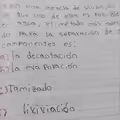 una mezcla de
uno de ellos es
agua, el método más
para la separación de
componentes es:
a) la decantación
b) la evaporación
c) tamizado
lixiviación